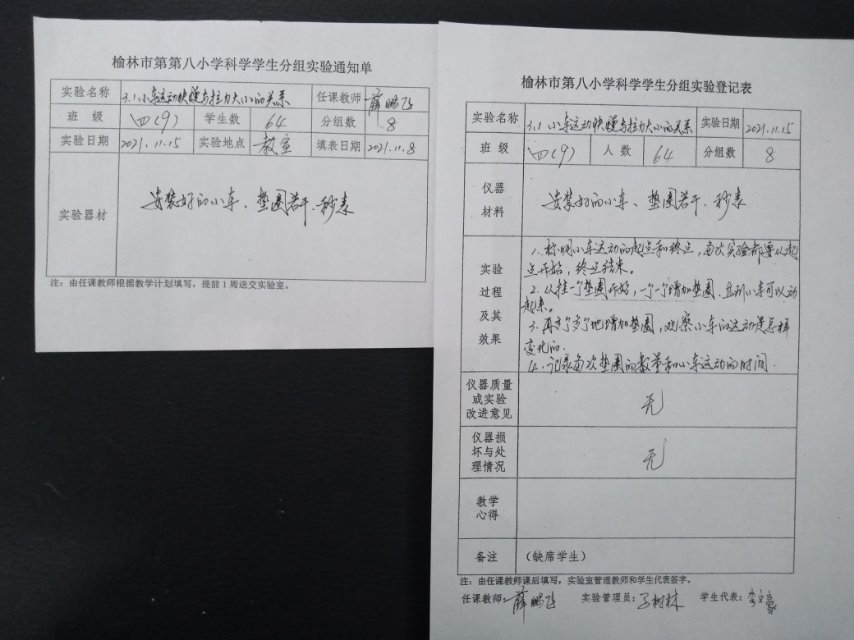 榆林市第第八小学科学学生分组实验通知单
实验名称 3.1小车运动快慢与拉力大小的关系 任课教师 薛鹏飞
班 级 四(9) 学生数 64 分组数 8
实验日期 2021.11.15 实验地点 教室 填表日期 2021.11.8
实验器材 安装好的小车、垫圈若干、秒表
注：由任课教师根据教学计划填写，提前1周送交实验室。
榆林市第八小学科学学生分组实验登记表
实验名称 3.1 小车运动快慢与拉力大小的关系 实验日期 2021.11.15
班 级 四(9) 人 数 64 分组数 8
仪器
材料
安装好的小车、垫圈若干、秒表
实验
过程
及其
效果
1.标明小车运动的起点和终点，每次实验都要从起
点开始，终点结束。
2.从挂一个垫圈开始，一个一个增加垫圈，直到小车可以动
起来。
3.再 地增加垫圈，观察小车的运动是怎样
变化的.
4.记录每次垫圈的数量和小车运动的时间.
仪器质量
或实验
改进意见
无
仪器损
坏与处
理情况
无
教学
心得
备注 （缺席学生）
注：由任课教师课后填写，实验室管理教师和学生代表签字。
任课教师：薛鹏飞 实验管理员：树林 学生代表：李 豪